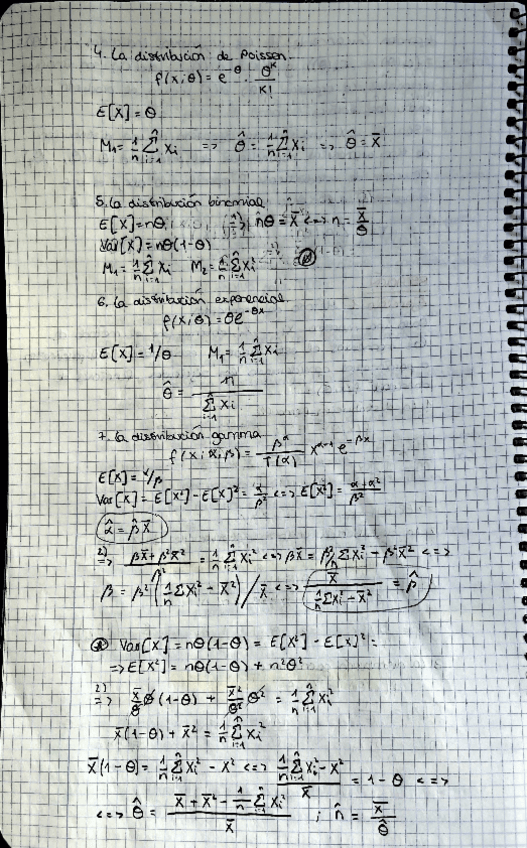 4. La distribución de Poisson
f(x;θ) = e^-θ · θ^k / k!
E[X] = θ
M₁ = 1/n Σ_{i=1}^n Xi => θ̂ = 1/n Σ_{i=1}^n Xi => θ̂ = X̄
5. La distribución binomial
E[X] = nθ n̂θ = X̄ <=> n = X̄/θ
Var[X] = nθ(1-θ)
M₁ = 1/n Σ_{i=1}^n Xi M₂ = 1/n Σ_{i=1}^n Xi²
6. La distribución exponencial
f(x;θ) = θe^-θx
E[X] = 1/θ M₁ = 1/n Σ_{i=1}^n Xi
θ̂ = n / Σ_{i=1}^n Xi
7. La distribución gamma
f(x;α,β) = β^α / Γ(α) x^{α-1} e^{-βx}
E[X] = α/β
Var[X] = E[X²] - E[X]² = α/β² <=> E[X²] = (α+α²)/β²
α̂ = β̂X̄
2) => (βX̄ + β²X̄²)/β² = 1/n Σ_{i=1}^n Xi² <=> βX̄ = β²/n ΣXi² - β²X̄² <=>
β = β² (1/n ΣXi² - X̄²) / X̄ <=> X̄ / (1/n ΣXi² - X̄²) = β̂
Var[X] = nθ(1-θ) = E[X²] - E[X]² =
=> E[X²] = nθ(1-θ) + n²θ²
2) => X̄/θ θ(1-θ) + X̄²/θ² θ² = 1/n Σ_{i=1}^n Xi²
X̄(1-θ) + X̄² = 1/n Σ_{i=1}^n Xi²
X̄(1-θ) = 1/n Σ_{i=1}^n Xi² - X² <=> (1/n Σ_{i=1}^n Xi² - X²) / X̄ = 1-θ <=>
<=> θ̂ = (X̄ + X̄² - 1/n Σ_{i=1}^n Xi²) / X̄ ; n̂ = X̄/θ̂